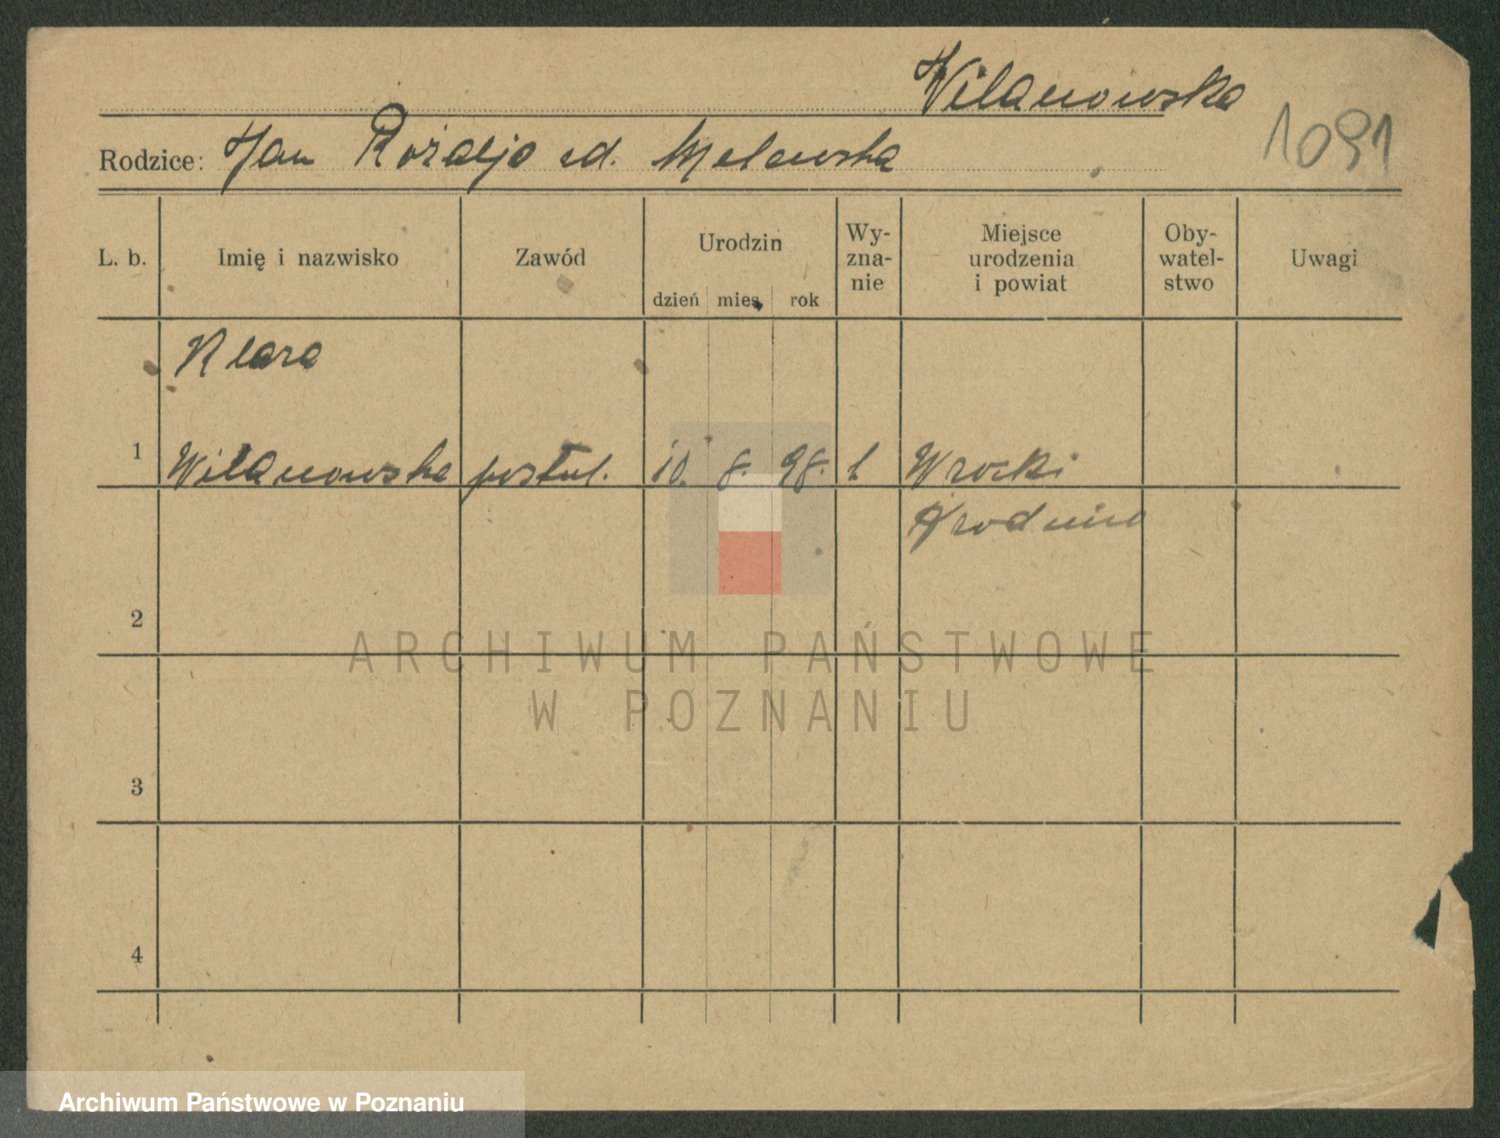 Wilanowska
1091
Rodzice: Jan Rozalja zd. Melewska
L. b. Imię i nazwisko Zawód Urodzin Wy-zna-nie Miejsce urodzenia i powiat Oby-watel-stwo Uwagi
dzień mies. rok
Klara
1 Wilanowska postul. 10. 8. 98. k Wrocki
Brodnica
2
ARCHIWUM PAŃSTWOWE
W POZNANIU
3
4
Archiwum Państwowe w Poznaniu